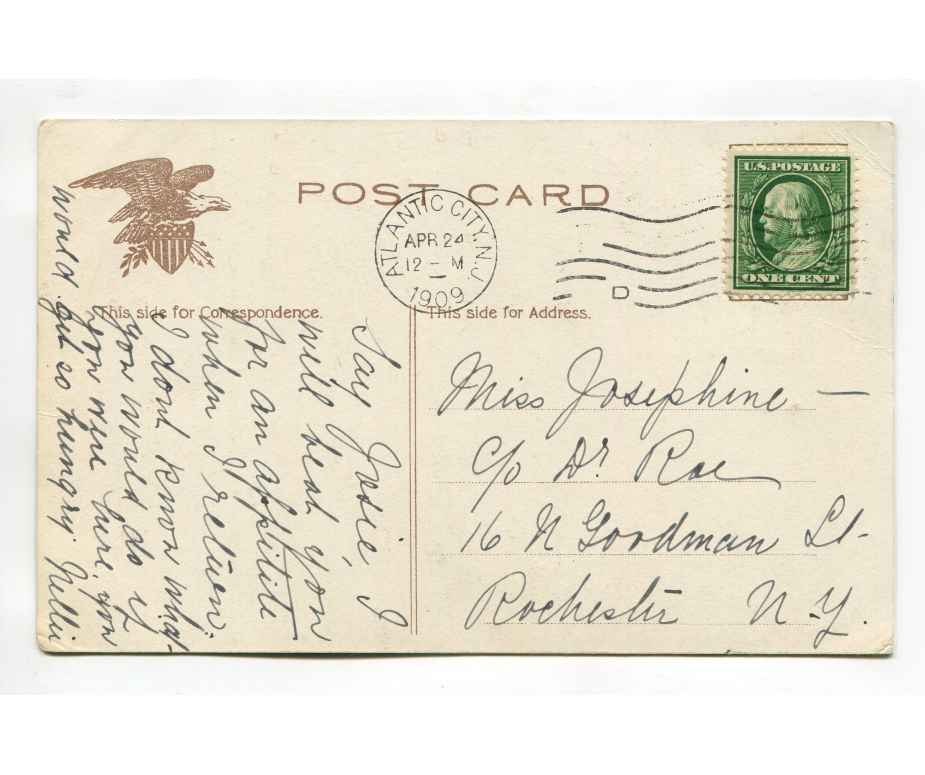 POST CARD
ATLANTIC CITY, N.J.
APR 24
12 - M
1909
D
U.S. POSTAGE
ONE CENT
This side for Correspondence.
This side for Address.
Say Josie, I
will beat you
for an appitite
when I return.
I dont know what
you would do if
you were here. you
would get so hungry. Nellie
Miss Josephine —
c/o Dr Roe
16 N Goodman St.
Rochester N.Y.